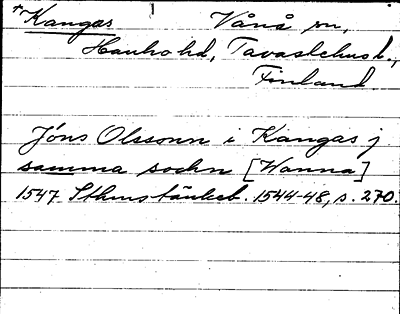 *Kangas Vånå sn,
Hauho hd, Tavastehus l.,
Finland.
Jöns Olssonn i Kangas j
samma sochn [Wanna]
1547. Sthms tänkeb. 1544-48, s. 270.